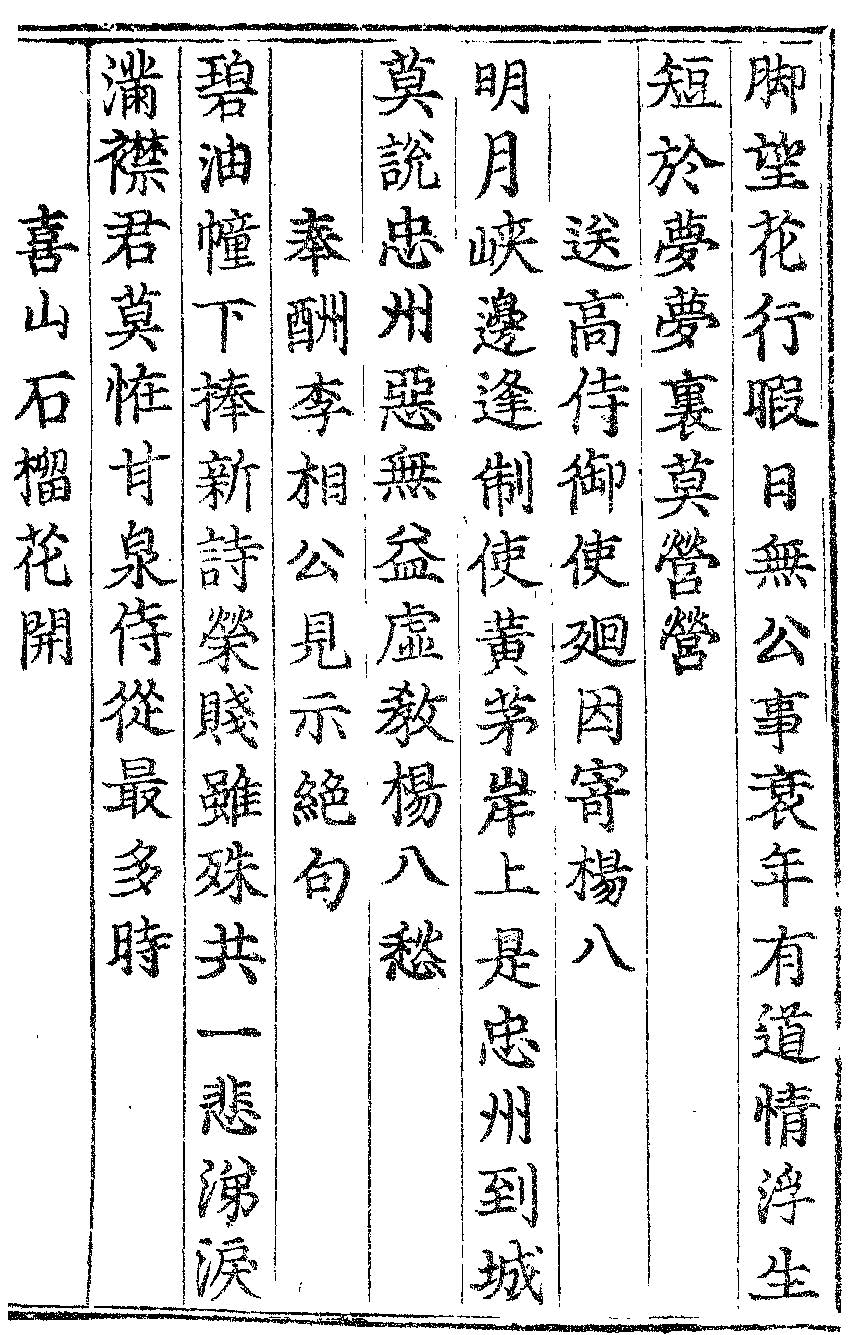 脚望花行暇日無公事衰年有道情浮生
短於夢夢裏莫營營
送高侍御使廻因寄楊八
明月峽邊逢制使黃茅岸上是忠州到城
莫說忠州惡無益虛敎楊八愁
奉酬李相公見示絕句
碧油幢下捧新詩榮賤雖殊共一悲涕淚
滿襟君莫恠甘泉侍從最多時
喜山石榴花開